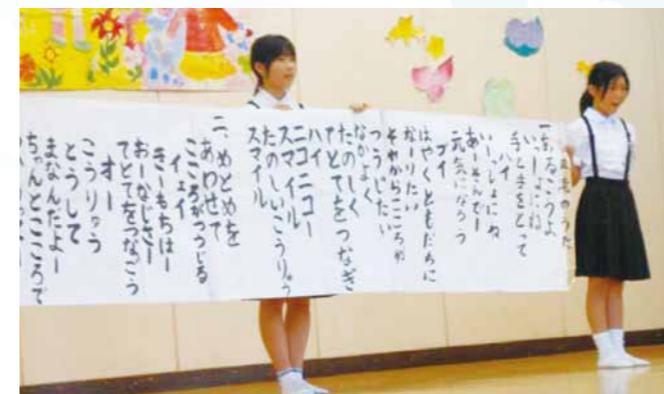 のうた
一、
手と手をとって
ハイ
いーっしょにね
あーそんでー
元気になろう
ブイ
はやくともだちに
なーりたい
それからこころが
つうじたい
なかよく
たのしく
てとてをつなぎ
ハイ
ニコニコー
スマイル
たのしいこうりゅう
スマイル
二、めとめを
あわせて
こころがつうじる
イェイ
きーもちはー
おーなじさー
てとてをつなごう
オー
こうりゅう
とうして
まなんだよー
ちゃんとこころで